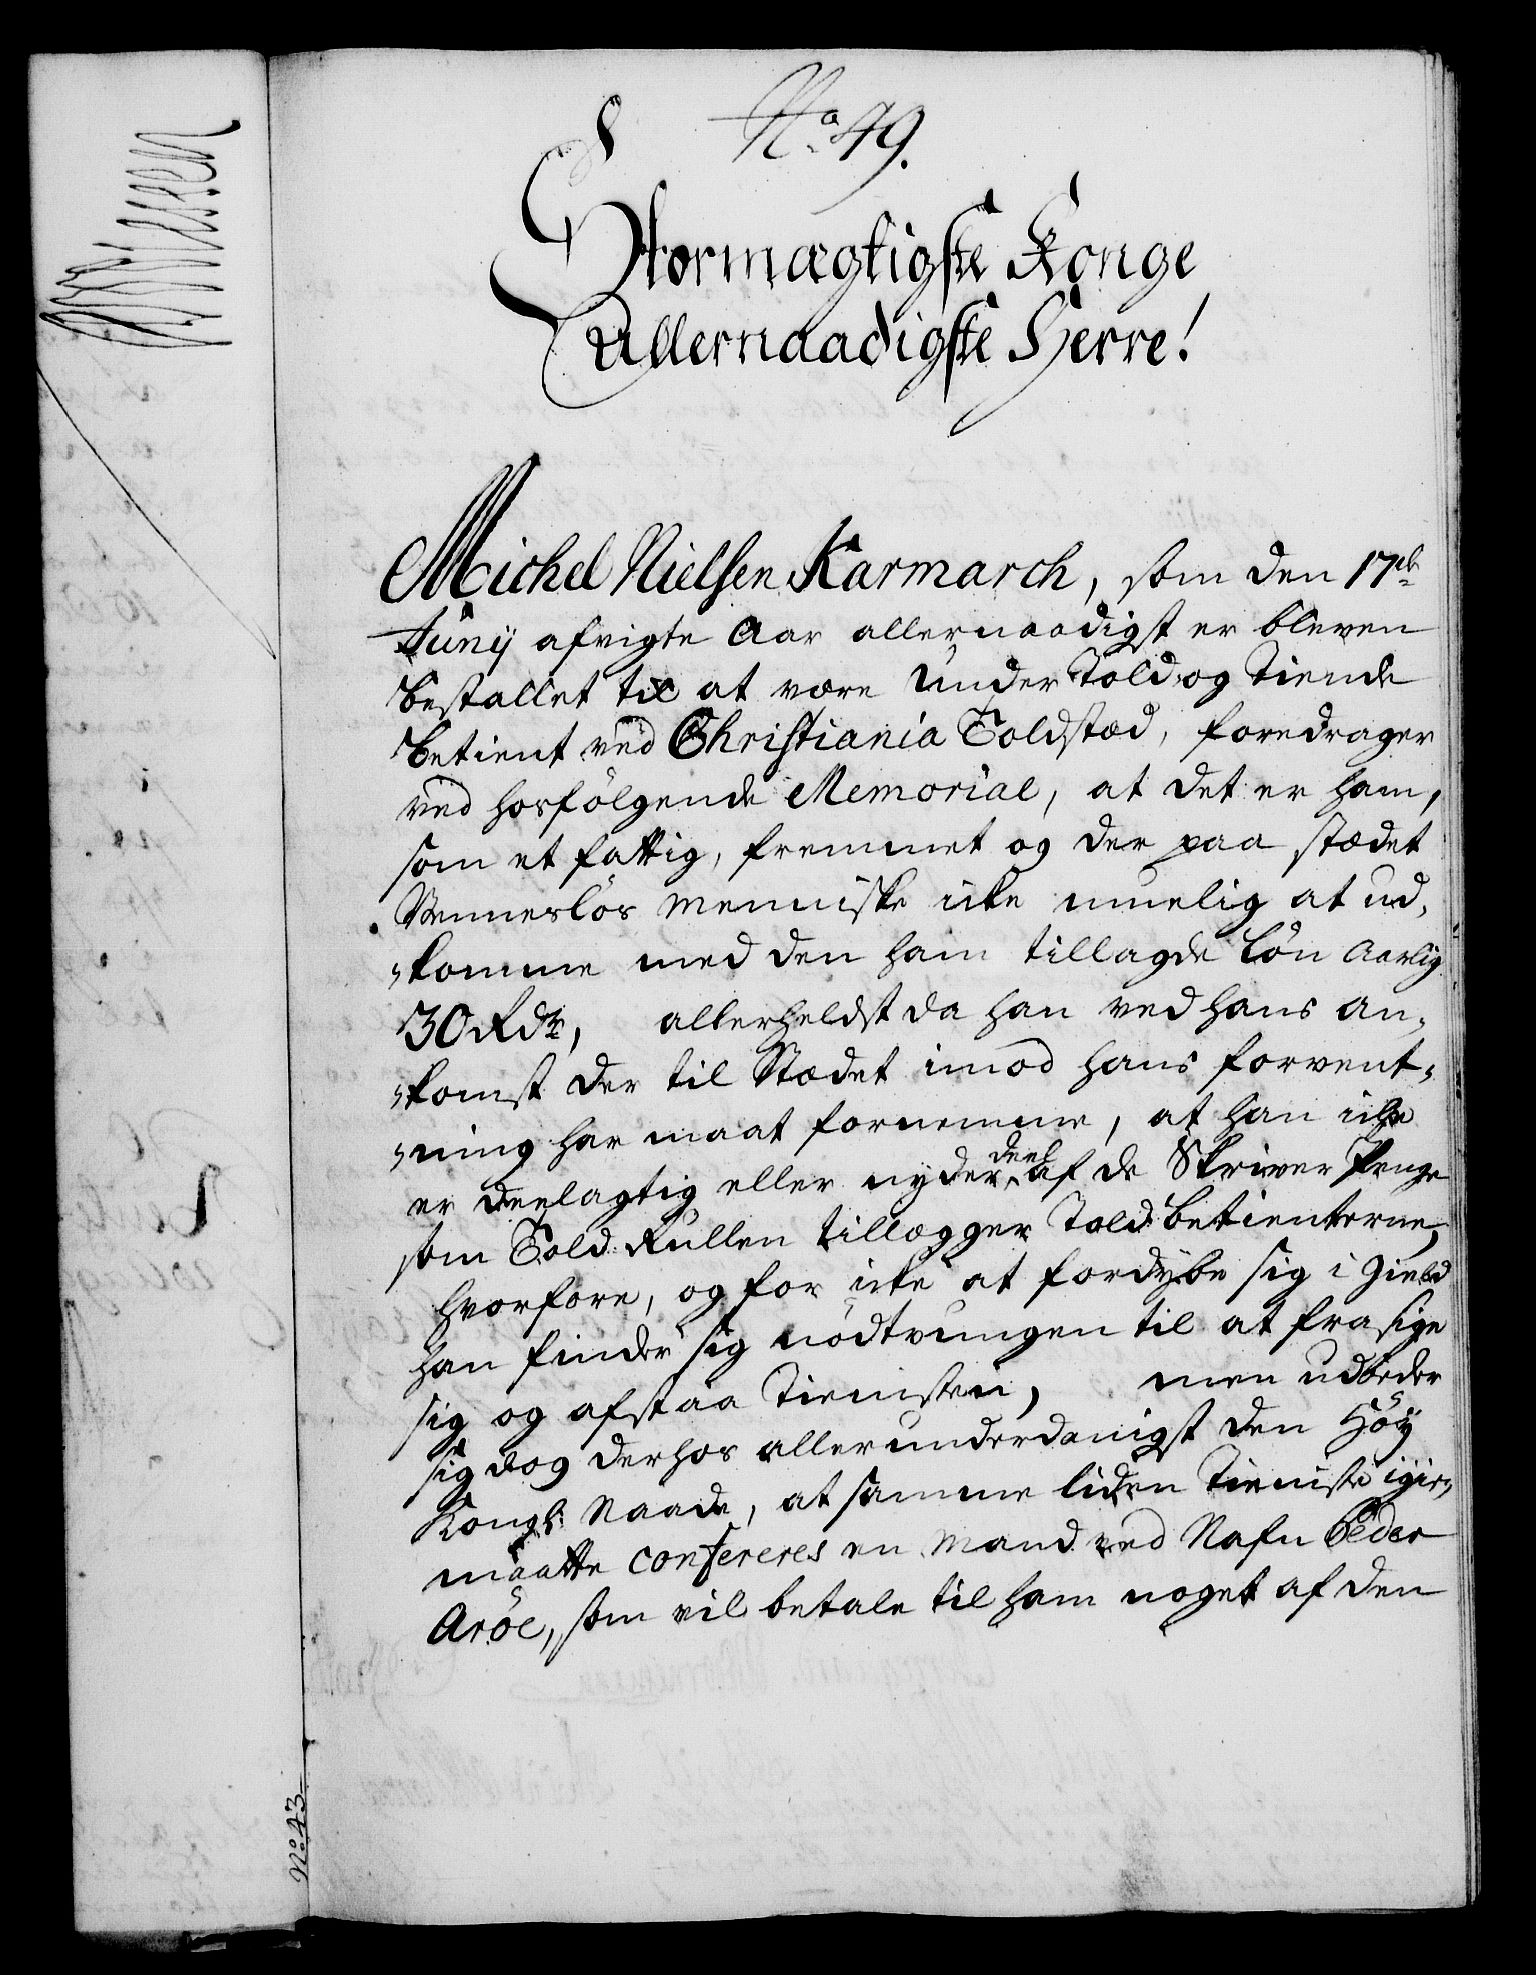 No 49.
Stormægtigste Konge
allernaadigste Herre!
Michel Nielsen Karmarch, som den 17de
Junij afvigte Aar allernaadigst er bleven
bestallet til at være Under Told og Tiende
betient ved Christiania Toldstæd, foredrager
ved hosfölgende Memorial, at det er ham,
som et fattig, fremmet og der paa stædet
Venneslös Menniske icke muelig at ud„
„komme med den ham tillagde Lön Aarlig
30 Rdr, allerheldst da han ved hans an„
„komst der til Stædet imod hans forvent„
„ning har maat fornemme, at han icke
er deelagtig eller nyder deel af de Skriver Penge
som Told Rullen tillægger Told betienterne,
hvorfore, og for icke at fordybe sig i Gield
han finder sig nödtvungen til at frasige
sig og afstaa Tienisten, men udbeder
sig dog derhos allerunderdanigst den Höy
Kongl: Naade, at samme liden Tieniste igien
maatte confereres en Mand ved Nafn Peder
Aröe, som vil betale til ham noget af den
No 43